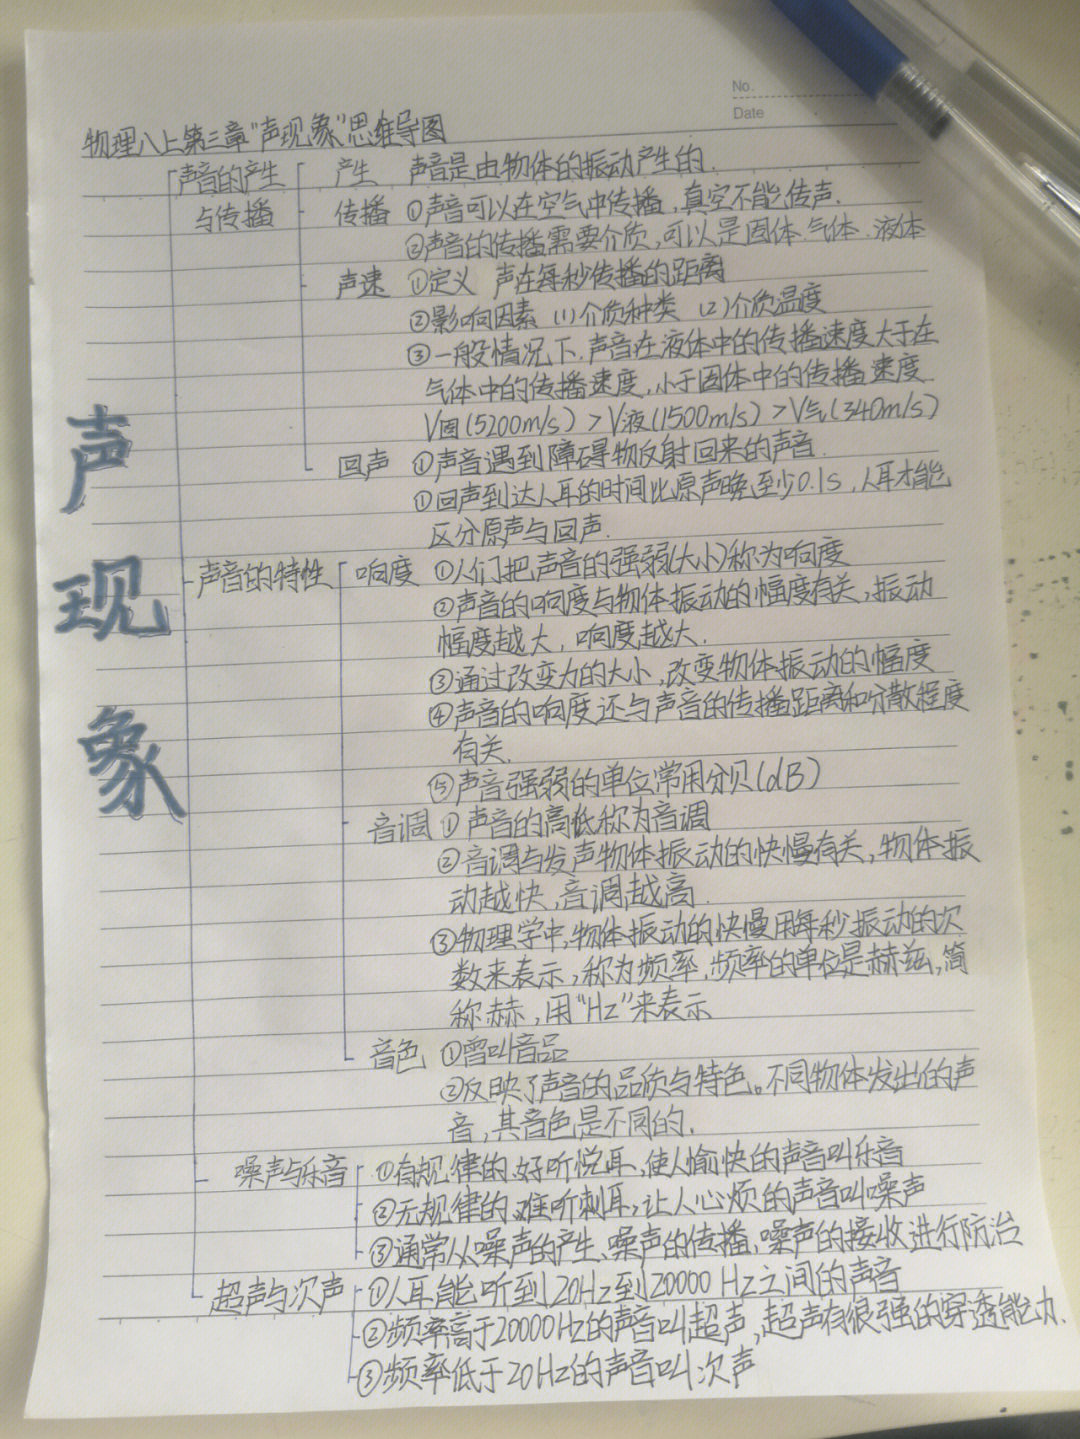 No.
Date
物理八上第三章“声现象”思维导图
声音的产生 产生 声音是由物体的振动产生的.
与传播 传播 ①声音可以在空气中传播,真空不能传声.
②声音的传播需要介质,可以是固体.气体.液体
声速 ①定义 声在每秒传播的距离
②影响因素 (1)介质种类 (2)介质温度
③一般情况下.声音在液体中的传播速度大于在
气体中的传播速度,小于固体中的传播速度
V固(5200m/s)>V液(1500m/s)>V气(340m/s)
回声 ①声音遇到障碍物反射回来的声音.
①回声到达人耳的时间比原声晚至少0.1s,人耳才能
区分原声与回声.
声音的特性 响度 ①人们把声音的强弱(大小)称为响度
②声音的响度与物体振动的幅度有关,振动
幅度越大,响度越大.
③通过改变力的大小,改变物体振动的幅度
④声音的响度还与声音的传播距离和分散程度
有关.
⑤声音强弱的单位常用分贝(dB)
音调 ①声音的高低称为音调
②音调与发声物体振动的快慢有关,物体振
动越快,音调越高.
③物理学中,物体振动的快慢用每秒振动的次
数来表示,称为频率.频率的单位是赫兹,简
称赫,用“Hz”来表示
音色 ①曾叫音品
②反映了声音的品质与特色。不同物体发出的声
音,其音色是不同的.
噪声与乐音 ①有规律的.好听悦耳,使人愉快的声音叫乐音
②无规律的.难听刺耳,让人心烦的声音叫噪声
③通常从噪声的产生、噪声的传播,噪声的接收进行防治
超声与次声 ①人耳能听到20Hz到20000Hz之间的声音
②频率高于20000Hz的声音叫超声,超声有很强的穿透能力.
③频率低于20Hz的声音叫次声
声
现
象